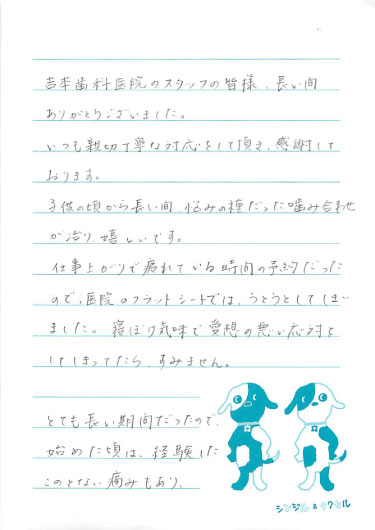 吉本歯科医院のスタッフの皆様、長い間
ありがとうございました。
いつも親切丁寧な対応をして頂き、感謝して
おります。
子供の頃から長い間、悩みの種だった噛み合わせ
が治り、嬉しいです。
仕事上がりで疲れている時間の予約だった
ので、医院のフラットシートでは、うとうとしてしまい
ました。寝ぼけ気味で愛想の悪い応対を
してしまってたら、すみません。
とても長い期間だったので、
始めた頃は、経験した
ことのない痛みもあり、
シンジル&ラクセル